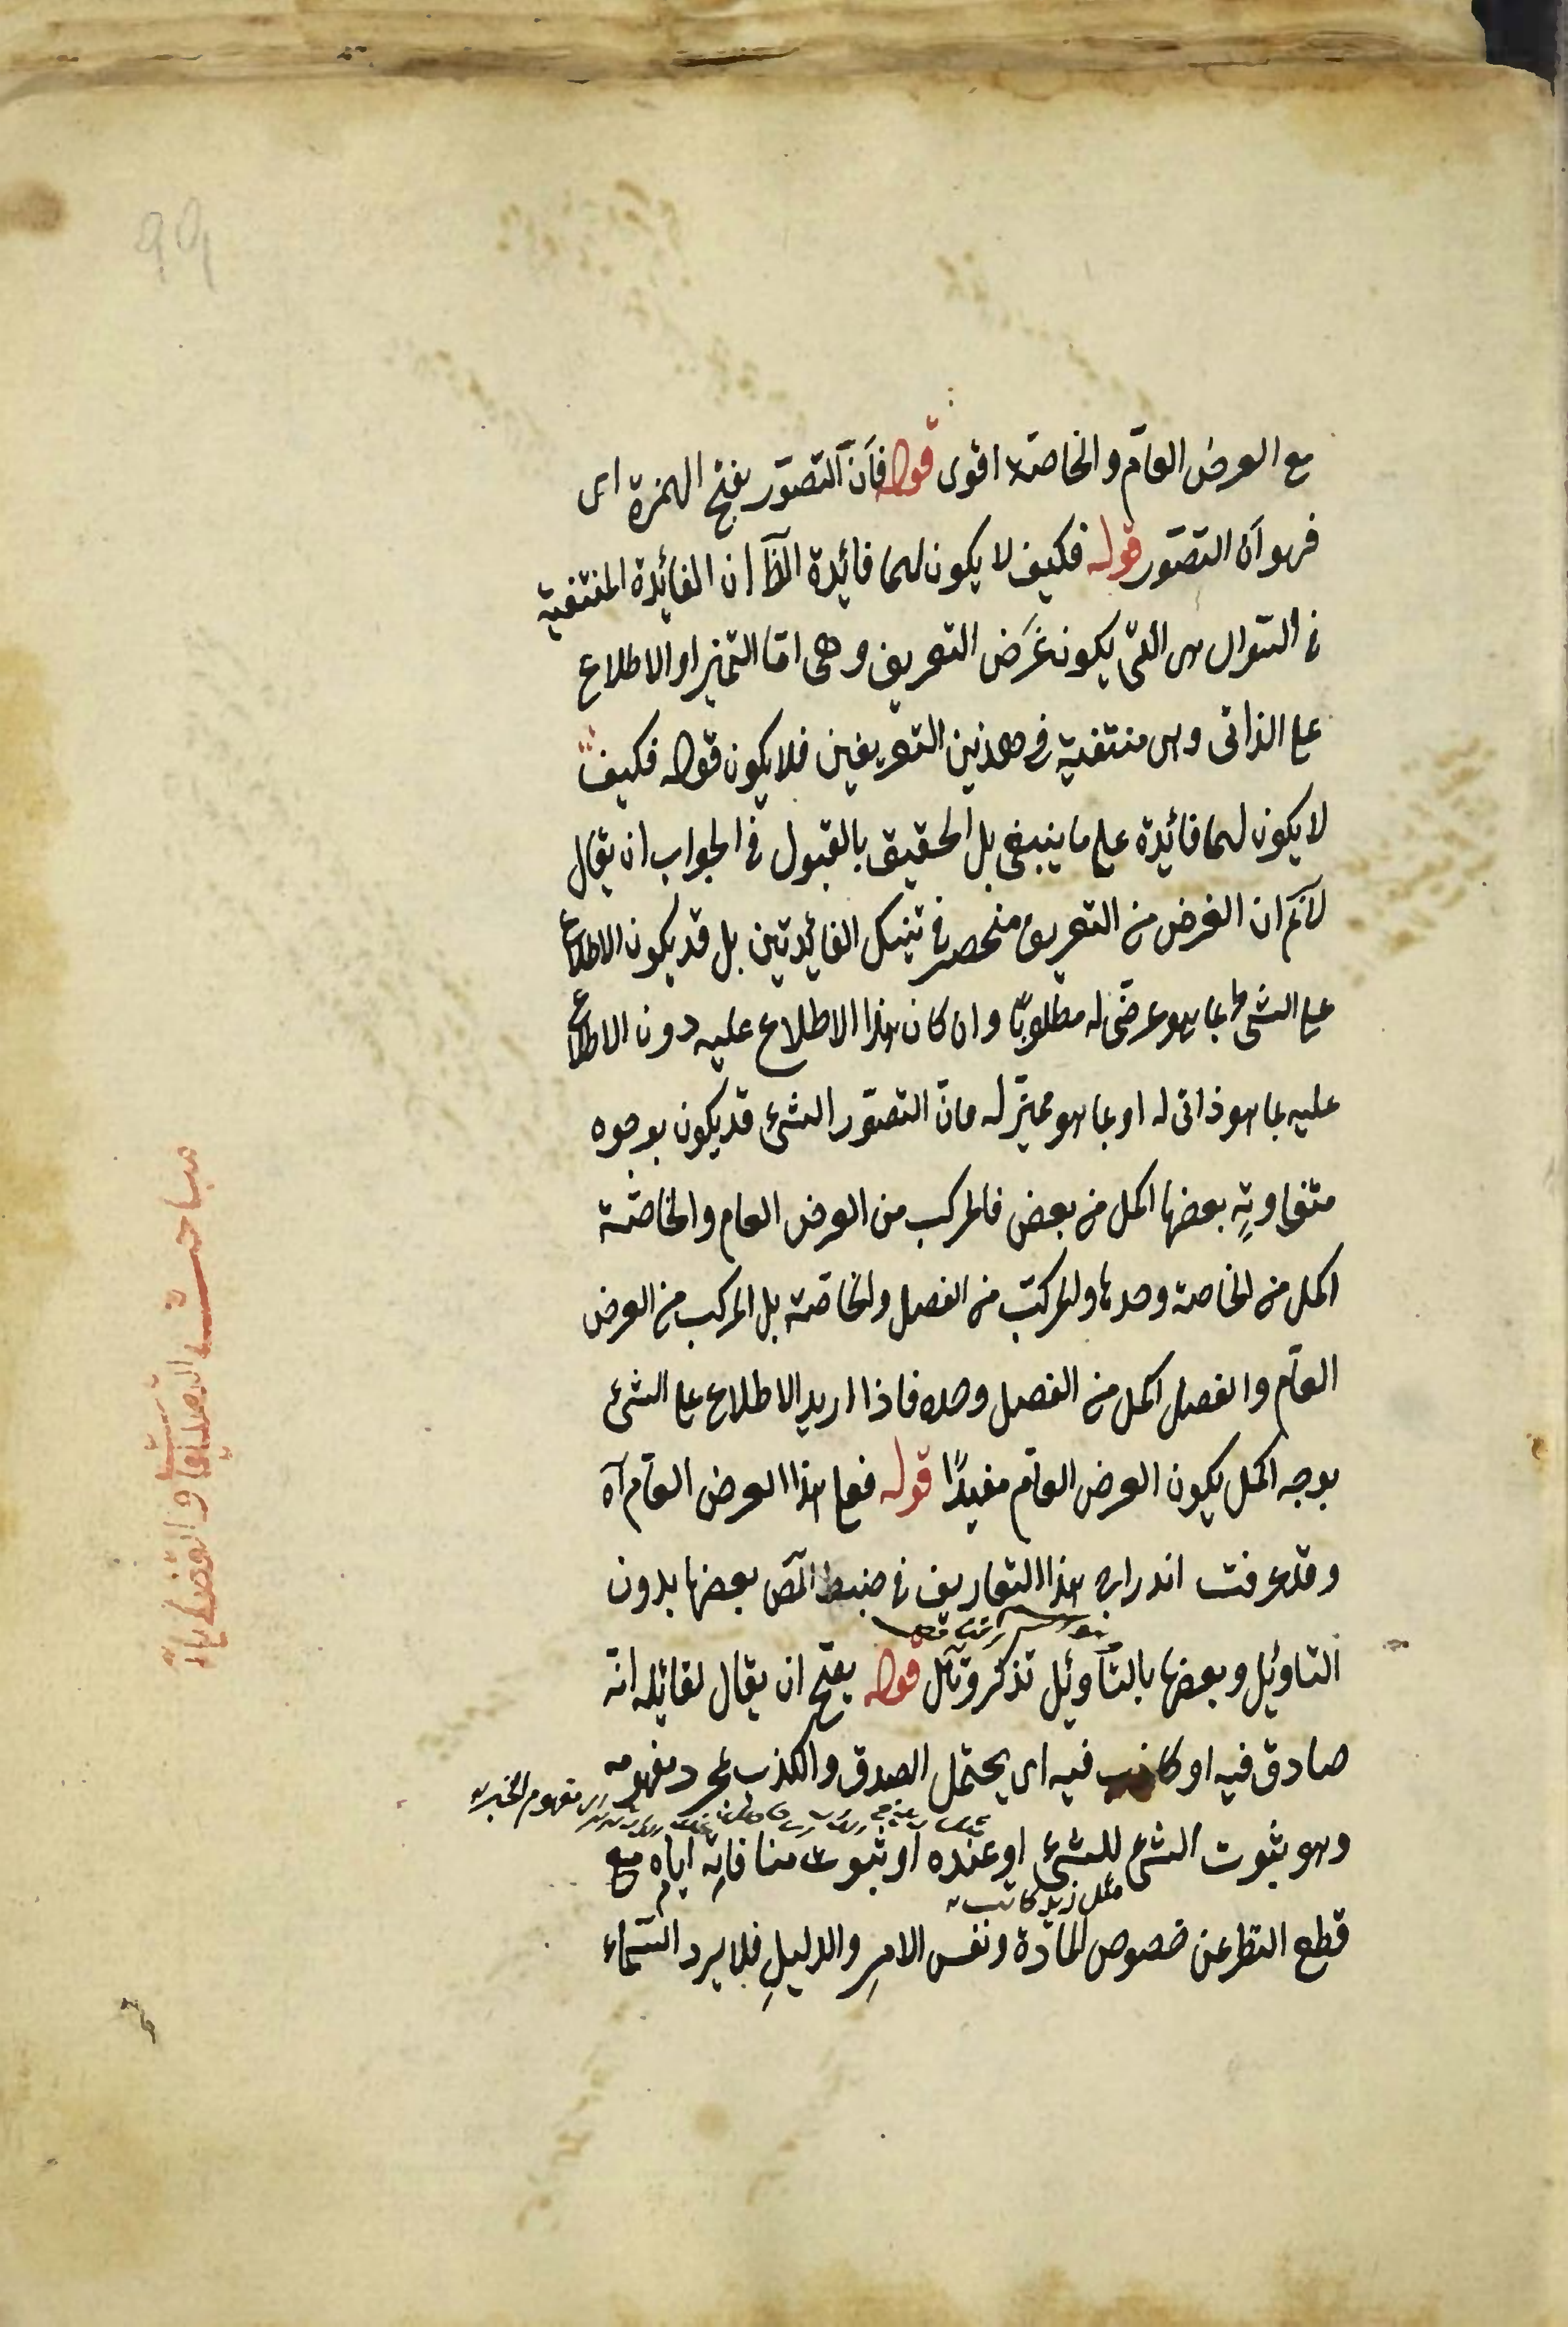 مع العرض العامّ والخاصّة اقوى قوله فانّ التصوّر بفتح الهمزة اى
فهو انّ التصوّر قوله فكيف لا يكون لهما فائيدة الظّ ان الفائيدة المنتفية
فى السؤال هى التى يكون غَرَض التعريف وهى امّا التميز او الاطلاع
على الذاتى وهى منتفية فى هذين التعريفين فلا يكون قوله فكيف
لا يكون لهما فائيدة على ما ينبغى بل الحقيق بالقبول فى الجواب ان يقال
لانم ان الغرض من التعريف منحصر فى تينك الفائيدتين بل قد يكون الاطلاع
على الشئ بما هو عرضى له مطلوبًا وان كان هذا الاطلاع عليه دون الاطلاع
عليه بما هو ذاتى له او بما هو مميّز له فانّ التصوّر الشئ قد يكون بوجوه
متفاوتةٍ بعضها اكمل من بعض فالمركب من العرض العام والخاصّة
اكمل من الخاصة وحدها والمركّب من الفصل والخاصّة بل المركب من العرض
العامّ والفصل اكمل من الفصل وحده فاذا اريد الاطلاع على الشئ
بوجه اكمل يكون العرض العامّ مفيدًا قوله فعلى هذا العرض العامّ آه
وقد عرفت اندراج هذا التعاريف فى ضبط المص بعضها بدون
التاوئيل وبعضها بالتّأوئيل تذكر وتأمّل قوله يصحّ ان يقال لقائيله انّه
صادق فيه او كاذب فيه اى يحتمل الصدق والكذب بمجرد مفهومه
اى مفهوم الخبر
وهو ثبوت الشئ للشئ او عنده او ثبوت منافاتِه اياه مع
مثل زيد كاتب
قطع النظر عن خصوص المادّة ونفس الامرِ والدليلِ فلا يرد السّماء
مباحث التصديقات والقضايا